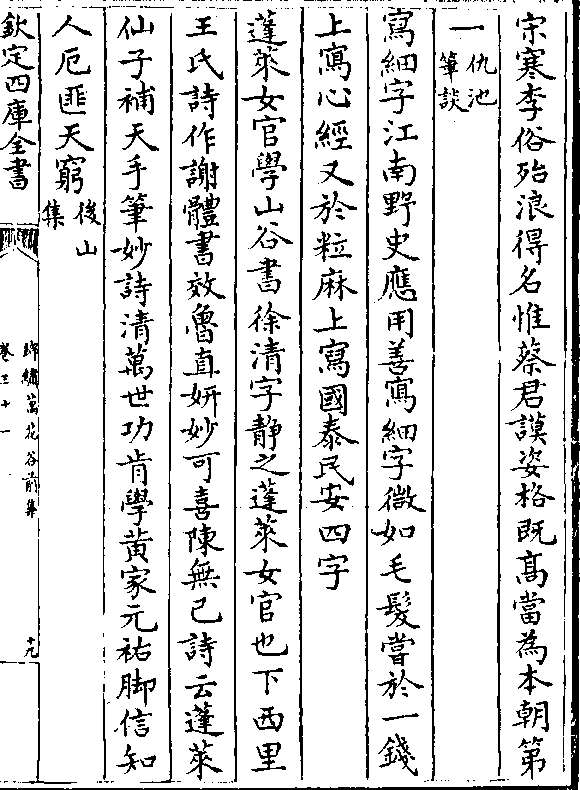 宋寒李俗殆浪得名惟蔡君謨姿格既髙當為本朝第
一仇池筆談
寫細字江南野史應用善寫細字微如毛髮嘗於一錢
上寫心經又於粒麻上寫國泰民安四字
蓬萊女官學山谷書徐清字靜之蓬萊女官也下西里
王氏詩作謝體書效魯直妍妙可喜陳無己詩云蓬萊
仙子補天手筆妙詩清萬世功肯學黄家元祐脚信知
人厄匪天窮後山集
欽定四庫全書
錦繡萬花谷前集
卷三十一
十九